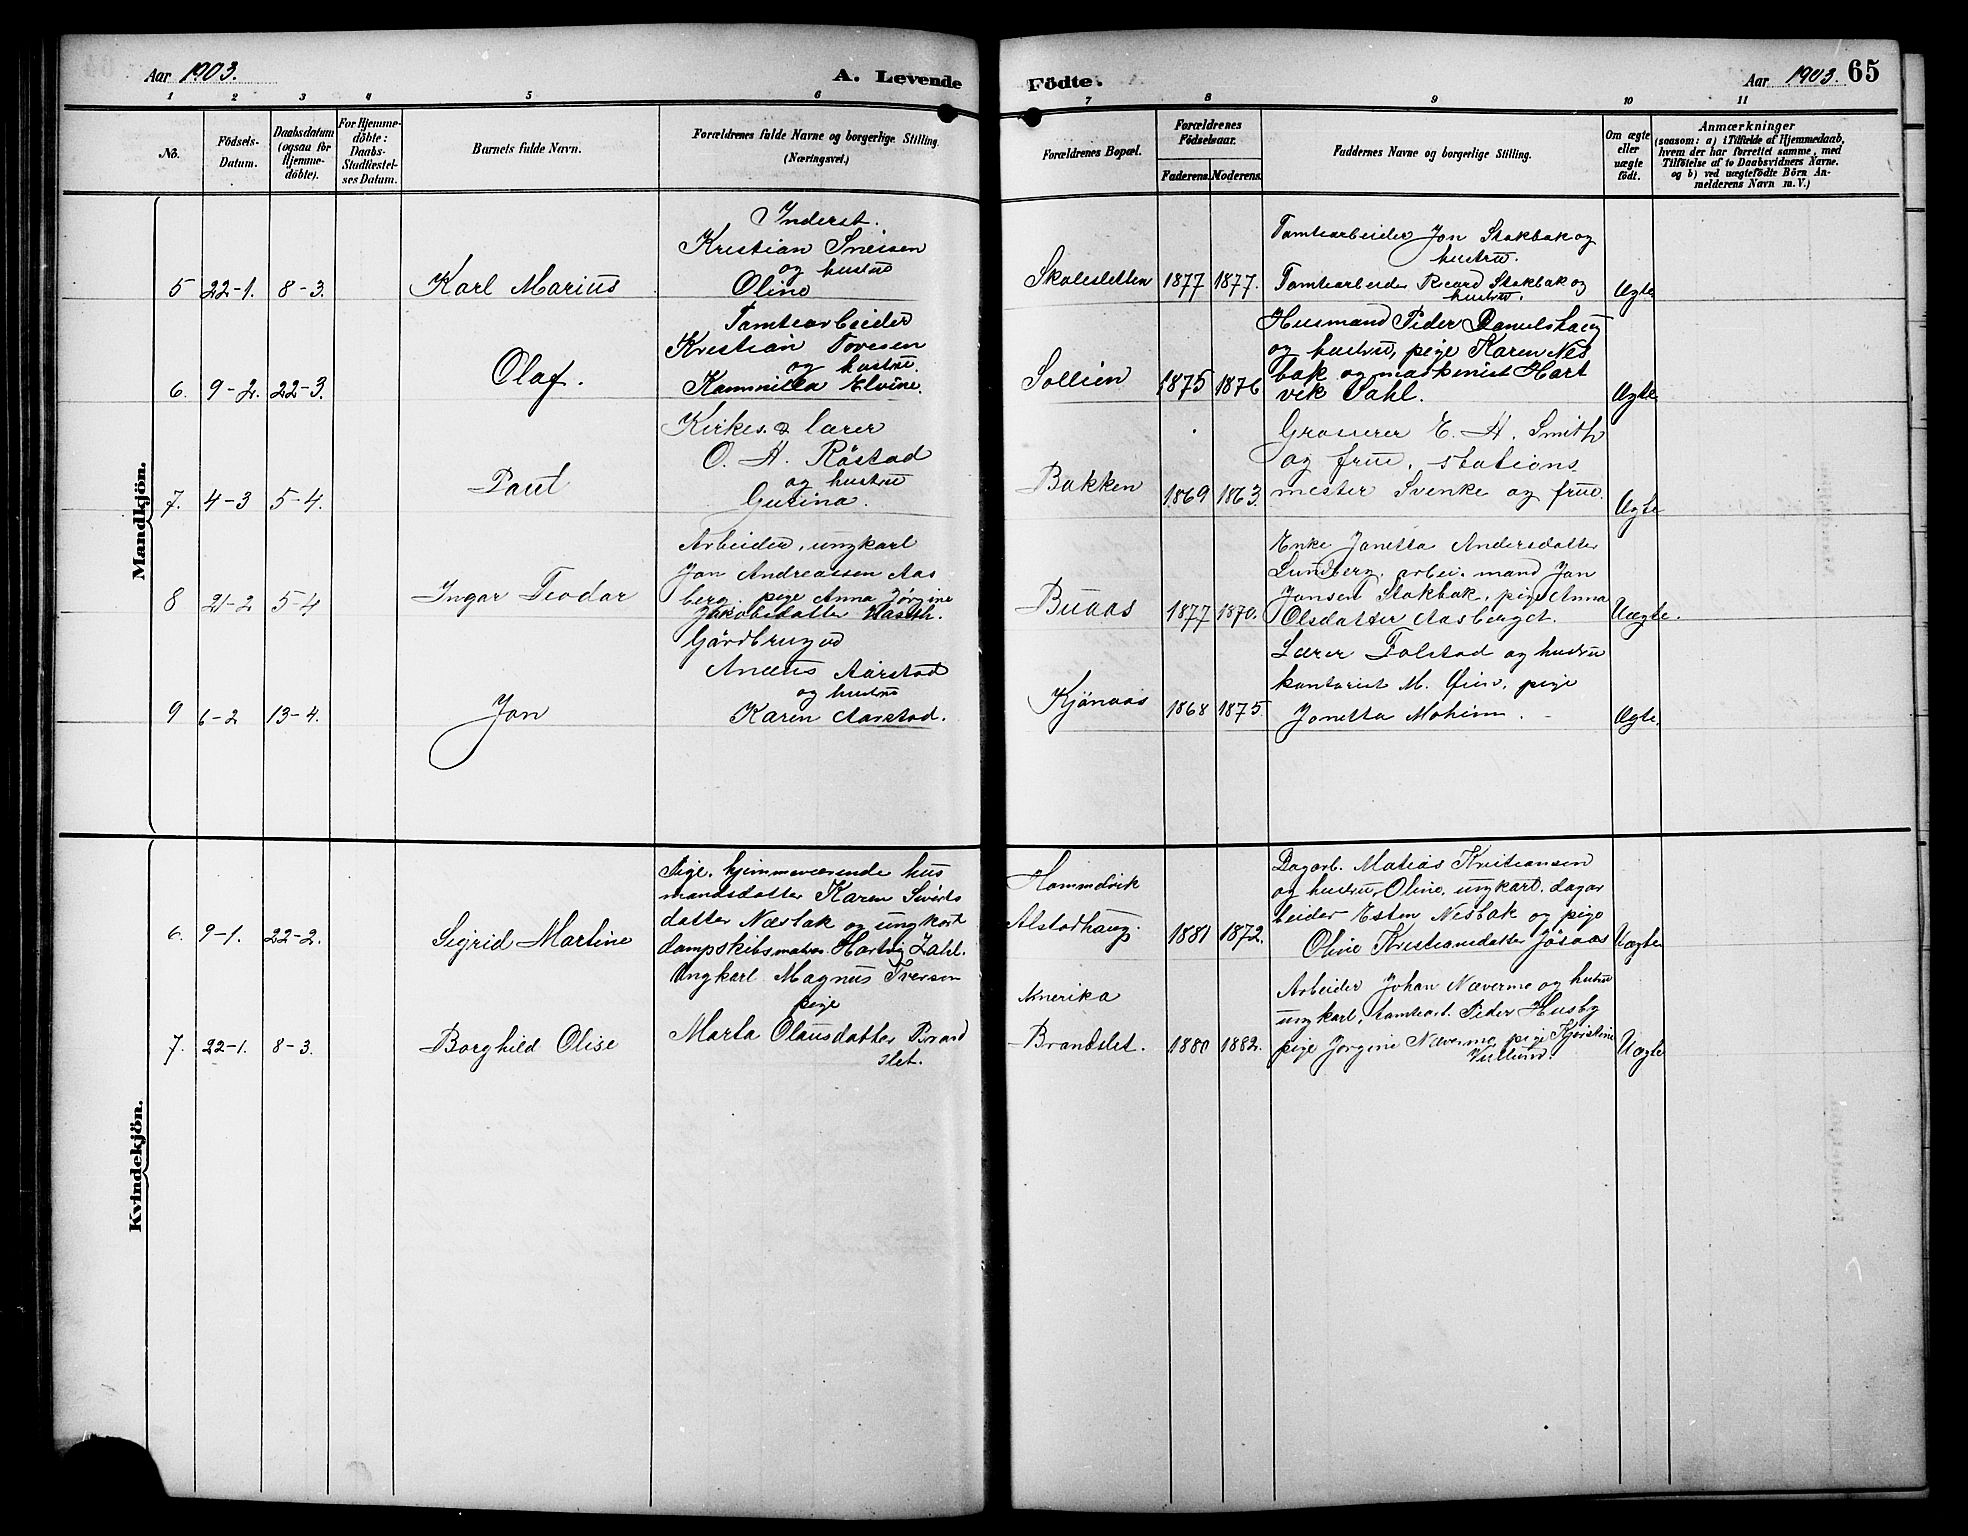 Aar 1903.
A. Levende
Födte.
Aar 1903. 65
1 2 3 4 5 6 7 8 9 10 11
No.
Födsels-
Datum.
Daabsdatum
(ogsaa for
Hjemme-
döbte).
For Hjemme-
döbte:
Daabs-
Stadfæstel-
ses Datum.
Barnets fulde Navn.
Forældrenes fulde Navne og borgerlige Stilling.
(Næringsvei.)
Forældrenes Bopæl.
Forældrenes
Födselsaar.
Faderens. Moderens.
Faddernes Navne og borgerlige Stilling.
Om ægte
eller
uægte
födt.
Anmærkninger
(saasom: a) i Tilfælde af Hjemmedaab,
hvem der har forrettet samme, med
Tilföielse af to Daabsvidners Navne.
og b) ved uægtefödte Börn An-
melderens Navn m. V.)
Mandkjön.
Inderst.
Kristian Sneisen
og hustru
5 22-1. 8-3. Karl Marius Oline
Skolesletten 1877 1877.
Tomtearbeider Jon Stokbak og
hustru.
Tomtearbeider Ricard Stokbak og
hustru.
Ægte
Tomtearbeider
Kristian Tovesen
og hustru.
6. 9-2. 22-3. Olaf. Kammilla Elvine.
Sollien 1875 1876
Husmand Peder Danielshaug
og hustru, pige Karen Nes
bak og maskenist Hart
vik Sahl.
Ægte
Kirkes. & lærer
O. H. Röstad
og hustru
7. 4-3 5-4. Paul Gurina.
Bakken 1869 1863.
Grosserer E. A. Smith
og frue, stations
mester Svenke og frue.
Ægte
Arbeider, ungkarl
Jon Andreassen Aas
berg. pige Anna Jörgine
8 21-2 5-4 Ingar Teodor Jakobsdatter
Buaas 1877 1870.
Enke Jonetta Andersdatter
Lundberg, arbei. mand Jon
Jonsen Stokbak, pige Anna
Olsdatter Aasberget.
Uægte.
Gårdbruger
Anæus Aarstad
og hustru
9 6-2 13-4. Jon Karen Aarstad.
Kjönaas 1868 1875.
Lærer Folstad og hustru
kontorist M. pige
Jonetta
Ægte.
Kvindekjön.
Pige. hjemmeværende hus
mandsdatter Karen Siverts
datter Næsbak og ungkarl
6. 9-1. 22-2. Sigrid Martine dampskibsmatros Hartvig Zahl.
Hammervik
Alstadhaug. 1881 1872.
Dagarb. Matias Kristiansen
og hustru, Oline, ungkarl. dagar
beider Esten Nesbak og pige
Oline Kristiansdatter Jösaas
Uægte
Ungkarl Magnus Iversen
pige
7. 22-1. 8-3. Borghild Olise Marta Olausdatter Brand
slet.
Amerika
Brandslet. 1880 1882.
Arbeider Johan Næverme og hustru
ungkarl, tomtearb. Peder Husby
pige Jorgine Næverme pige Kjerstine
Viullund.
Uægte